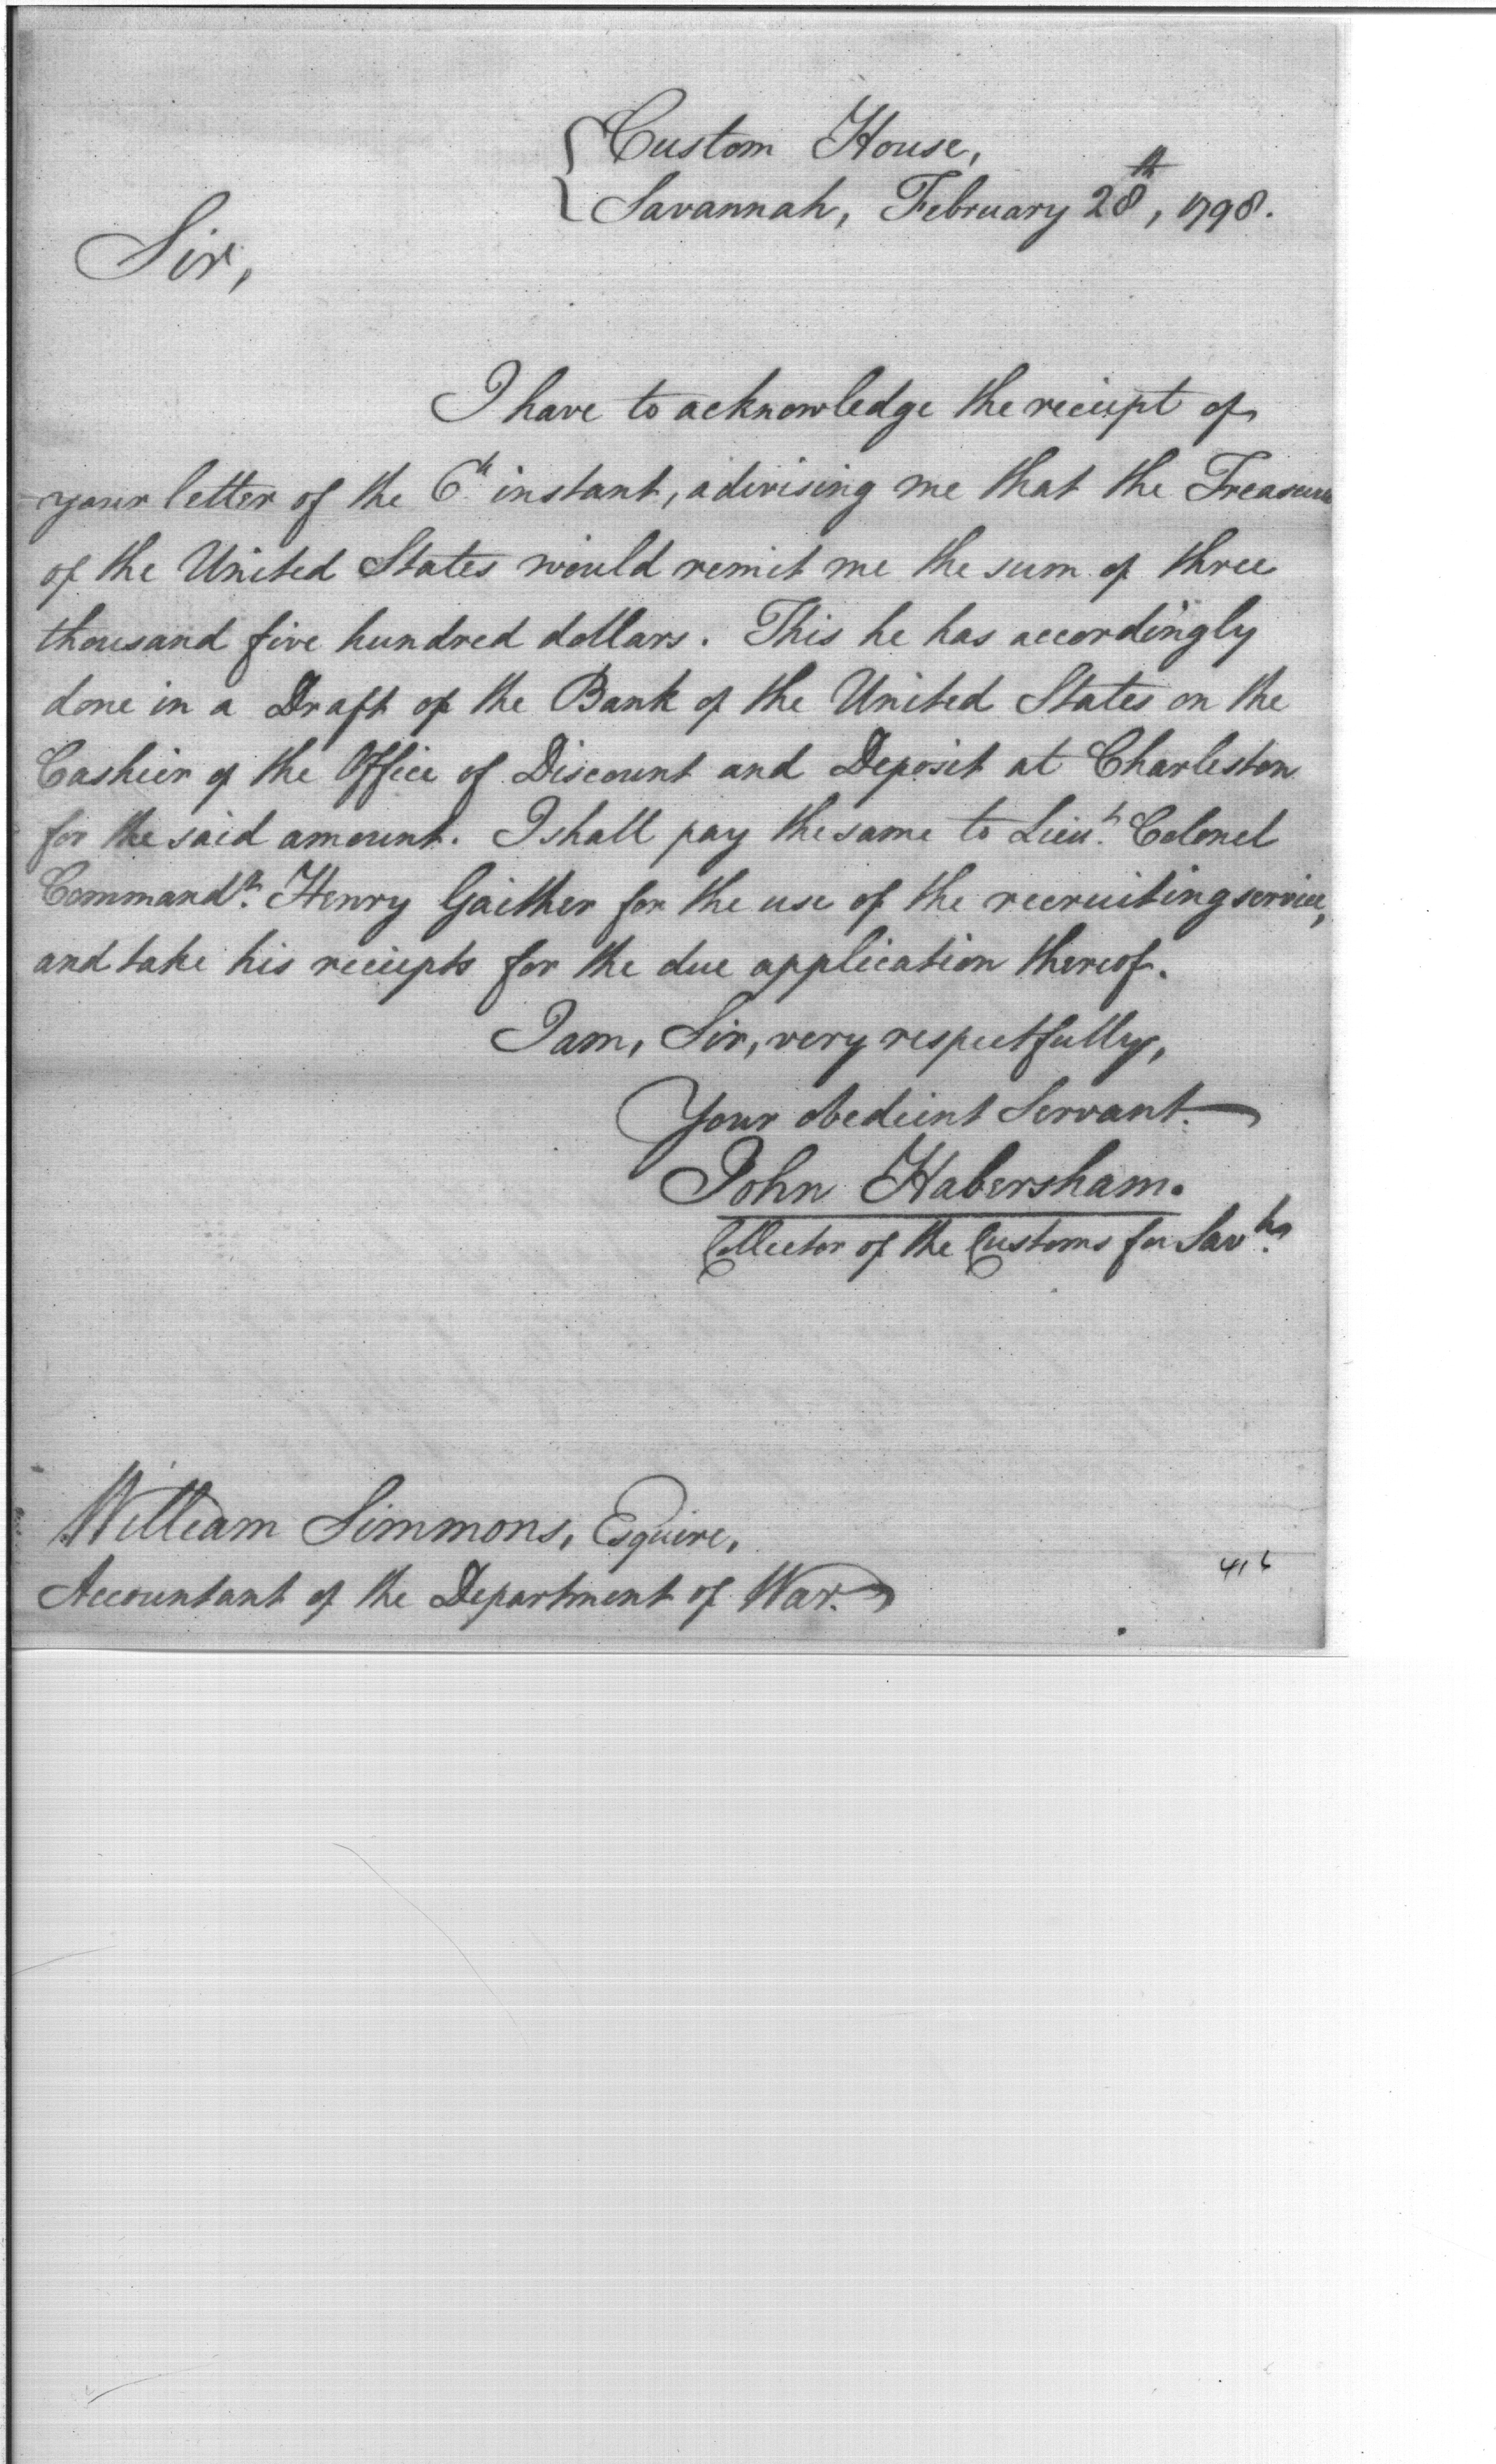 Custom House,
Savannah, February 28th, 1798.
Sir,
I have to acknowledge the reciept of
your letter of the 6th instant, advising me that the Treasurer
of the United States would remit me the sum of three
thousand five hundred dollars. This he has accordingly
done in a Draft of the Bank of the United States on the
Cashier of the Office of Discount and Deposit at Charleston
for the said amount. I shall pay the same to Lieut. Colonel
Commandt. Henry Gaither for the use of the recruiting service,
and take his reciepts for the due application thereof.
I am, Sir, very respectfully,
Your obedient Servant.
John Habersham.
Collector of the Customs for Savh.
William Simmons, Esquire,
Accountant of the Department of War.